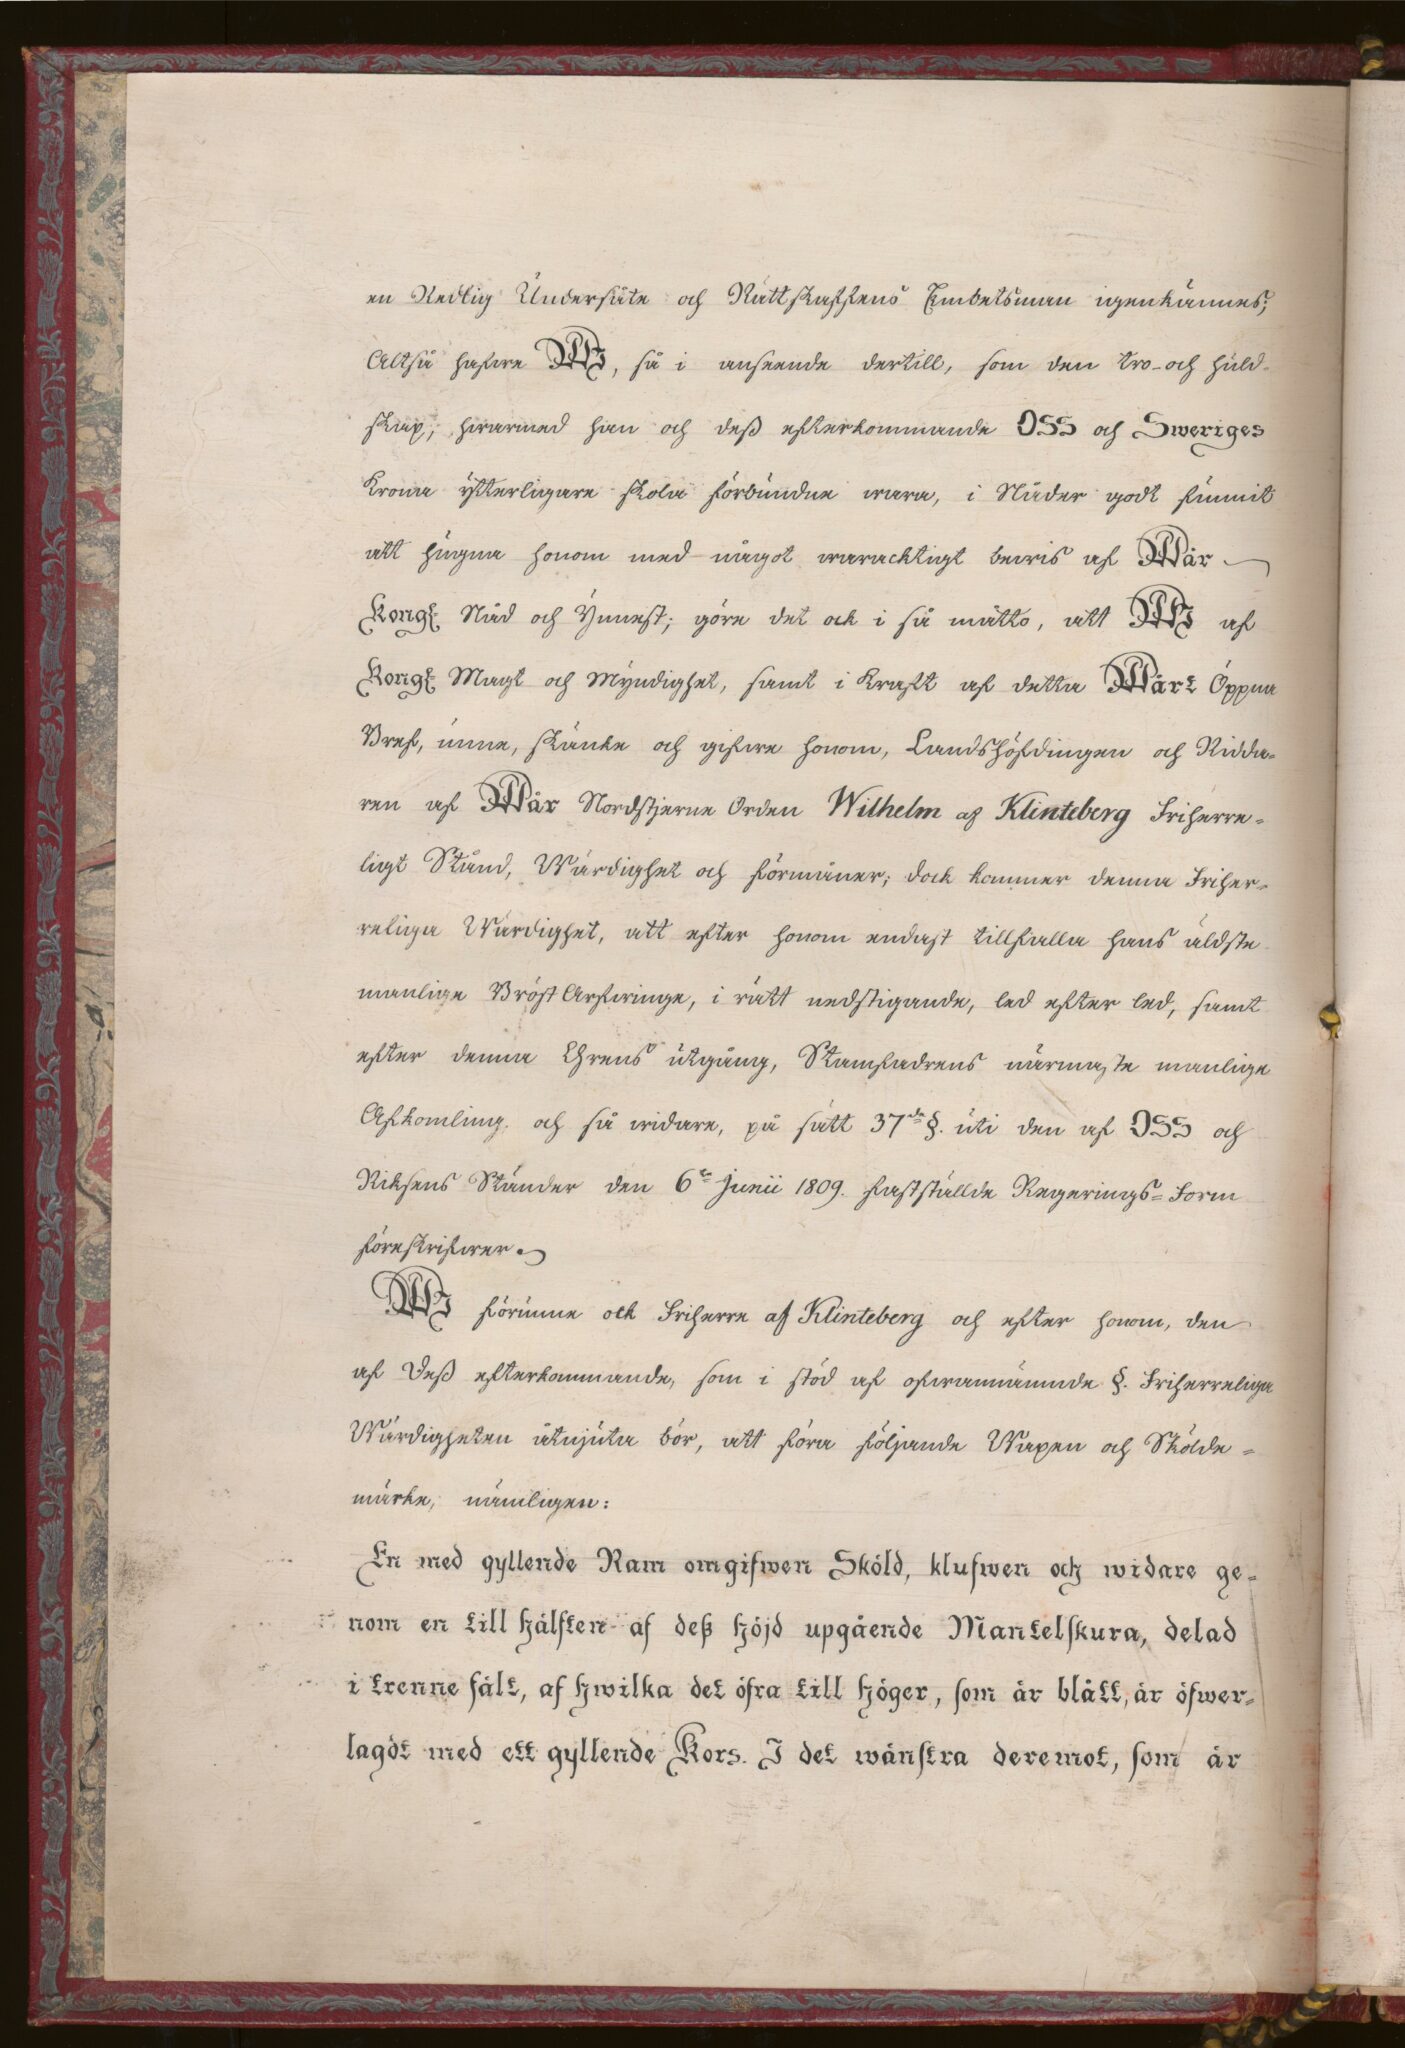 en Redlig Undersåte och Rättskaffens Embetsman igenkännes;
Altså hafwe WJ, så i anseende dertill, som den tro- och huld-
skap, hwarmed han och deß efterkommande OSS och Sweriges
Krona ytterligare skola förbundne wara, i Nåder godt funnit
att hugna honom med något warachtigt bewis af Wår
Kongl Nåd och Ynnest; göre det ock i så måtto, att WJ af
Kongl Magt och Myndighet, samt i Kraft af detta Wårt Öppna
Bref, unne, skänke och gifwe honom, Landshöfdingen och Ridda-
ren af Wår Nordstjerne Orden Wilhelm af Klinteberg Friherre-
ligt Stånd, Wärdighet och förmåner; dock kommer denna Friher-
religa Wärdighet, att efter honom endast tillfalla hans äldste
manlige Bröst Arfwinge, i rätt nedstigande, led efter led, samt
efter denna Grens utgång, Stamfadrens närmaste manlige
Afkomling, och så widare, på sätt 37de §. uti den af OSS och
Riksens Ständer den 6te Junii 1809. fastställde Regerings-Form
föreskrifwer.
WJ förunne ock Friherre af Klinteberg och efter honom, den
af Deß efterkommande, som i stöd af ofwannämnde §. Friherreliga
Wärdigheten åtnjuta bör, att föra följande Wapen och Skölde-
märke, nämligen:
En med gyllende Ram omgifwen Sköld, klufwen och widare ge-
nom en till hälften af deß höjd upgående Mantelskura, delad
i trenne fält, af hwilka det öfra till höger, som är blått, är öfwer-
lagdt med ett gyllende Kors. I det wänstra deremot, som är